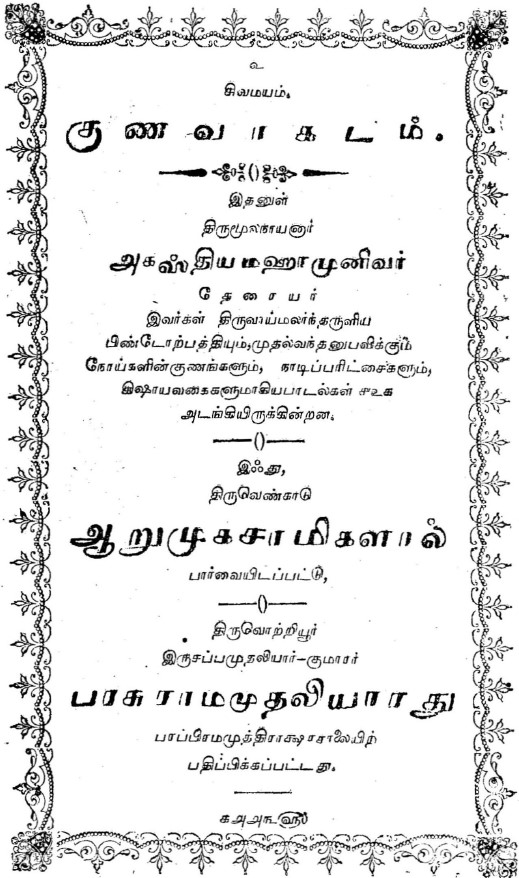 உ
சிவமயம்.
குணவாகடம்.
இதனுள்
திருமூலநாயனார்
அகஸ்தியமஹாமுனிவர்
தேரையர்
இவர்கள் திருவாய்மலர்ந்தருளிய
பிண்டோற்பத்தியும், முதல்வந்தனுபவிக்கும்
நோய்களின்குணங்களும், நாடிப்பரிட்சைகளும்,
கிஷாயவகைகளுமாகியபாடல்கள்
அடங்கியிருக்கின்றன.
இஃது,
திருவெண்காடு
ஆறுமுகசாமிகளால்
பார்வையிடப்பட்டு,
திருவொற்றியூர்
இருசப்பமுதலியார்-குமாரர்
பரசுராமமுதலியாரது
பரப்பிரமமுத்திராக்ஷரசாலையிற்
பதிப்பிக்கப்பட்டது.